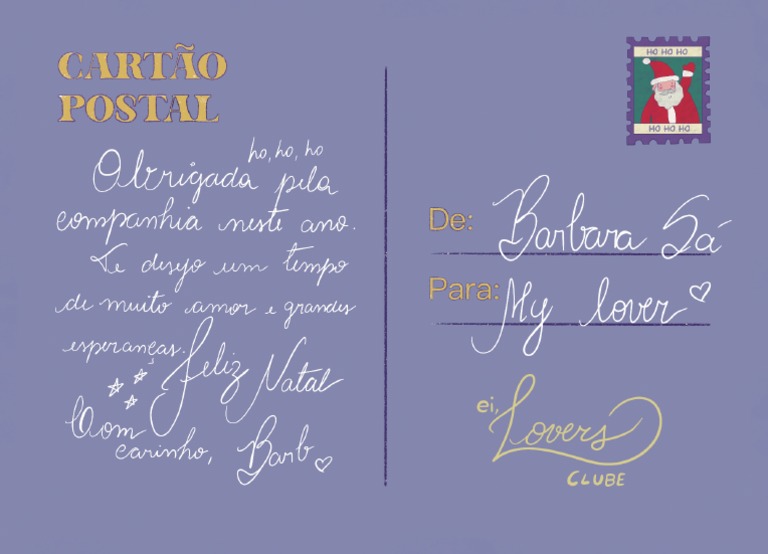 CARTÃO
POSTAL
ho, ho, ho
Obrigada pela
companhia neste ano.
Te desejo um tempo
de muito amor e grandes
esperanças.
Feliz Natal
Com
carinho, Barb
HO HO HO
HO HO HO
De: Barbara Sá
Para: My lover
ei, Lovers
CLUBE